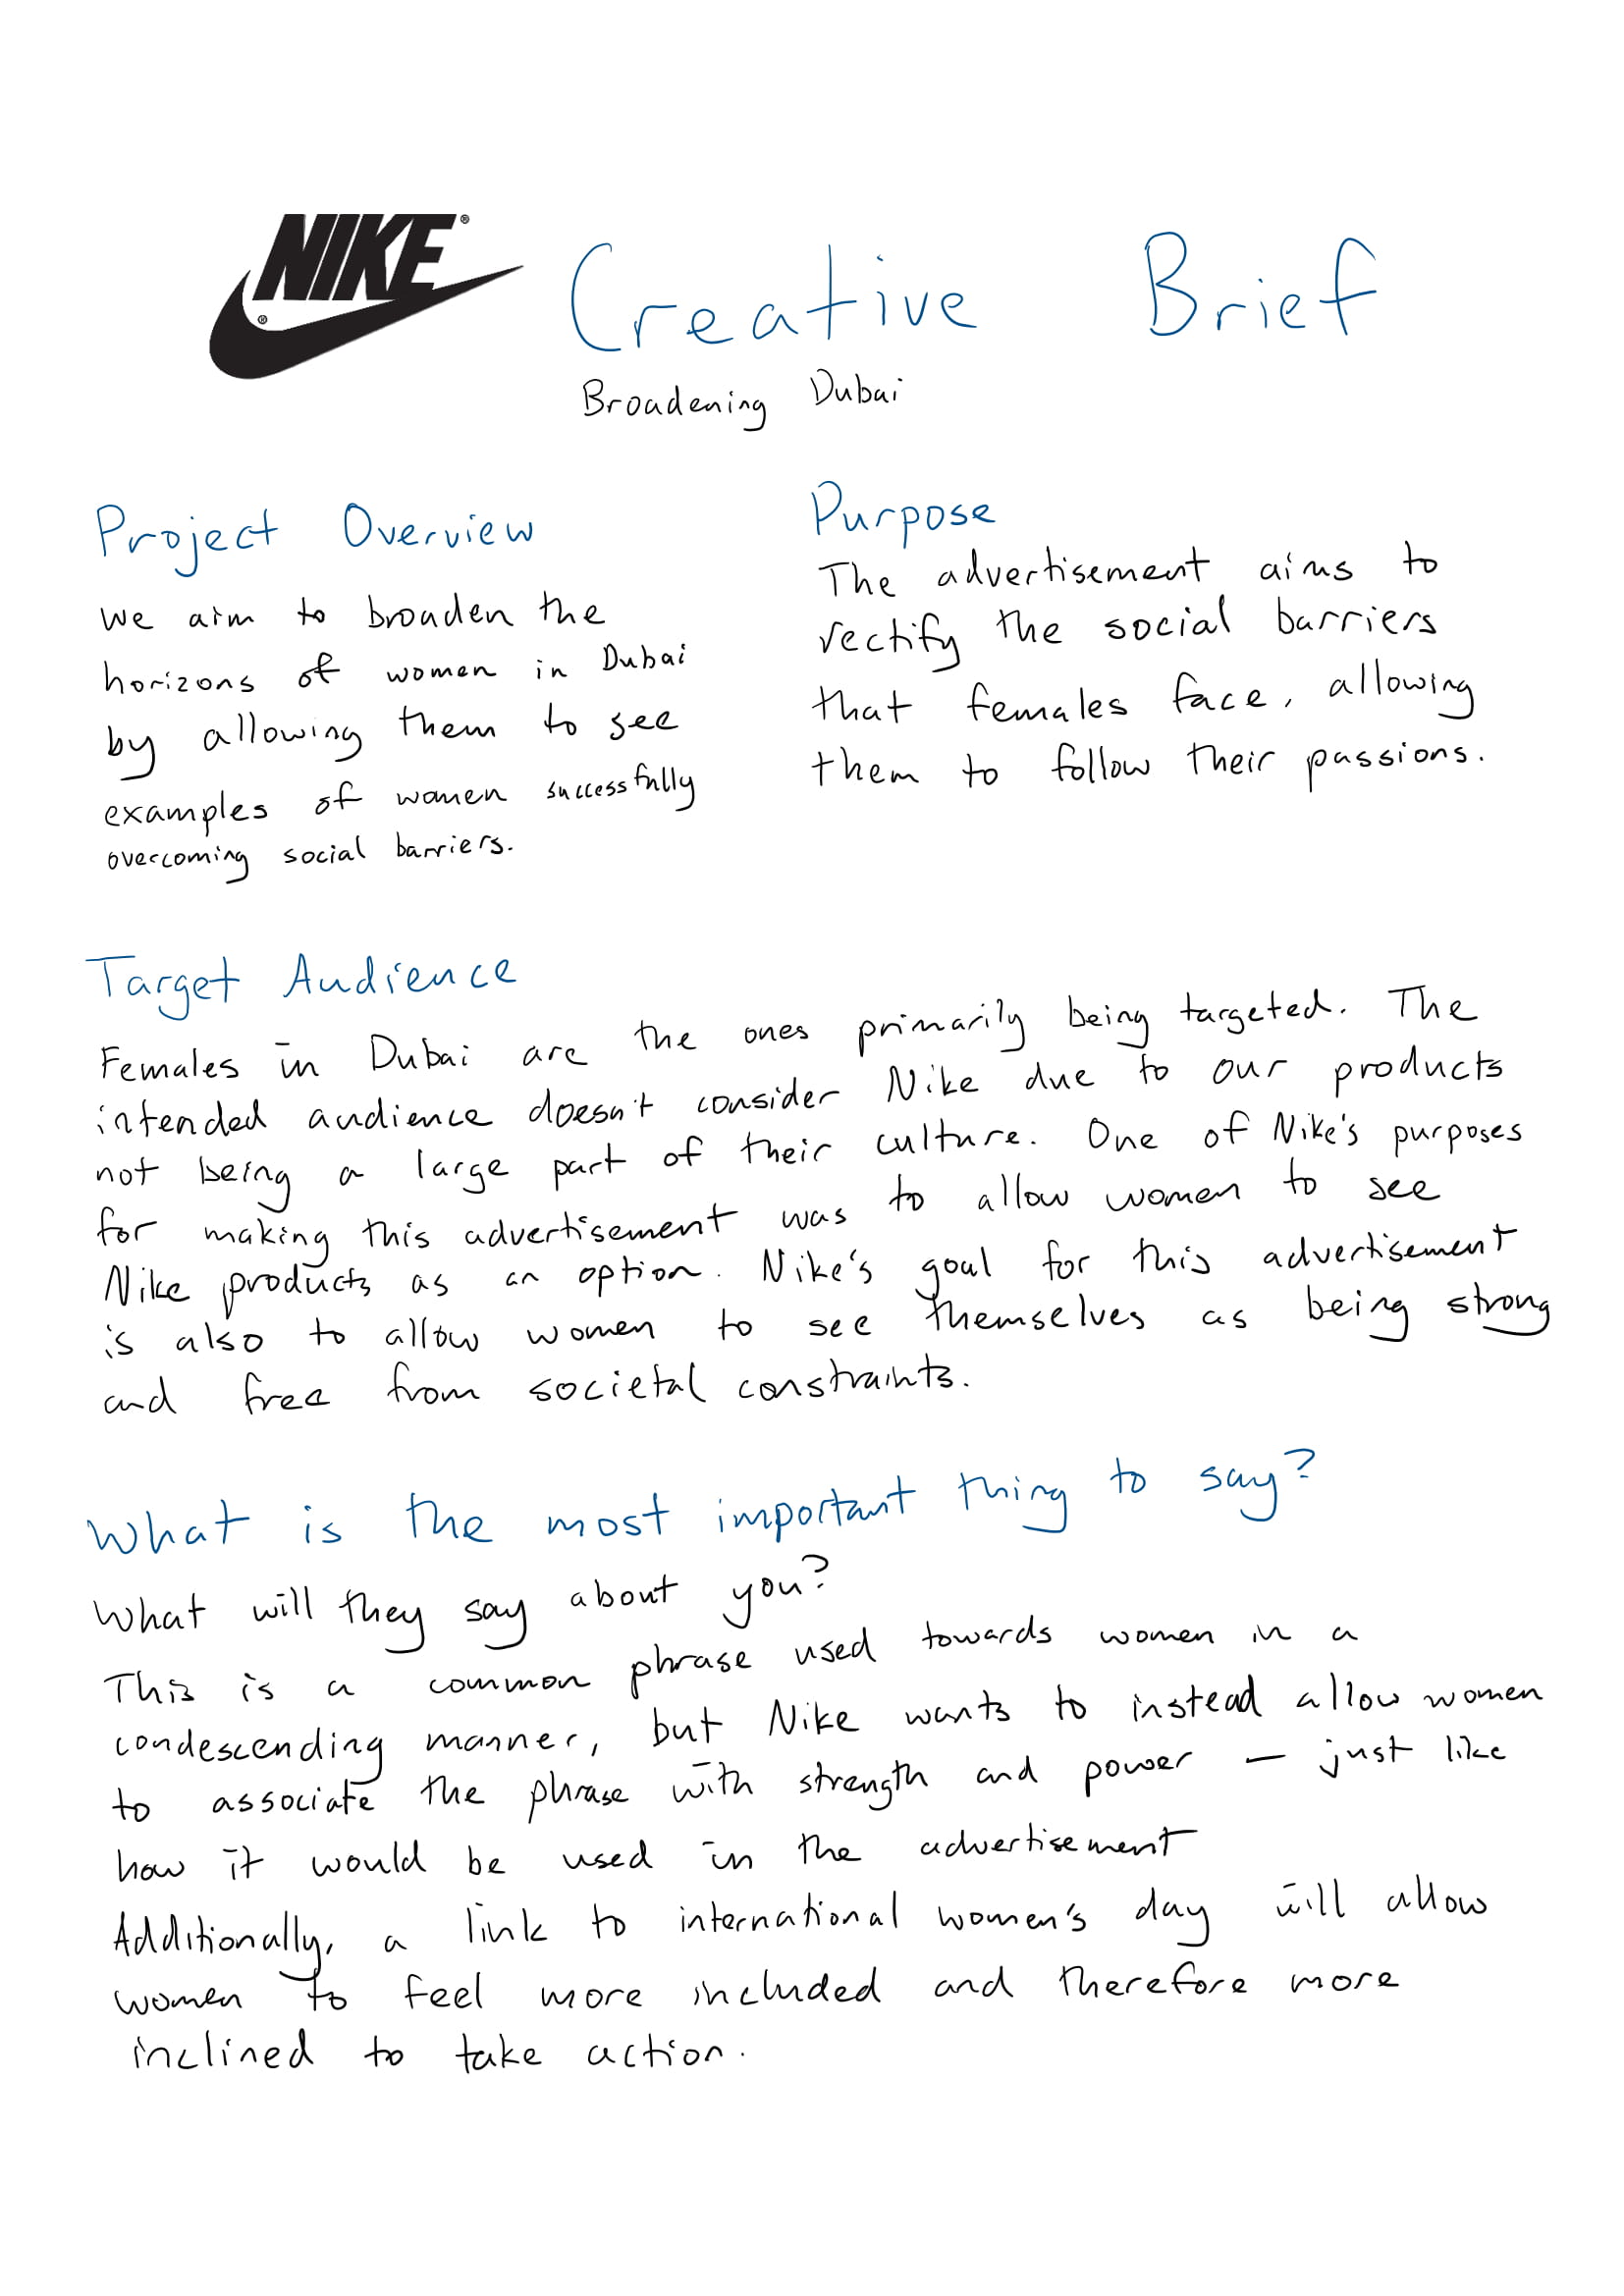 NIKE®
®
Creative Brief
Broadening Dubai
Project Overview
we aim to broaden the
horizons of women in Dubai
by allowing them to see
examples of women successfully
overcoming social barriers.
Purpose
The advertisement aims to
rectify the social barriers
that females face, allowing
them to follow their passions.
Target Audience
Females in Dubai are the ones primarily being targeted. The
intended audience doesn't consider Nike due to our products
not being a large part of their culture. One of Nike's purposes
for making this advertisement was to allow women to see
Nike products as an option. Nike's goal for this advertisement
is also to allow women to see themselves as being strong
and free from societal constraints.
What is the most important thing to say?
What will they say about you?
This is a common phrase used towards women in a
condescending manner, but Nike wants to instead allow women
to associate the phrase with strength and power – just like
how it would be used in the advertisement
Additionally, a link to international women's day will allow
women to feel more included and therefore more
inclined to take action.